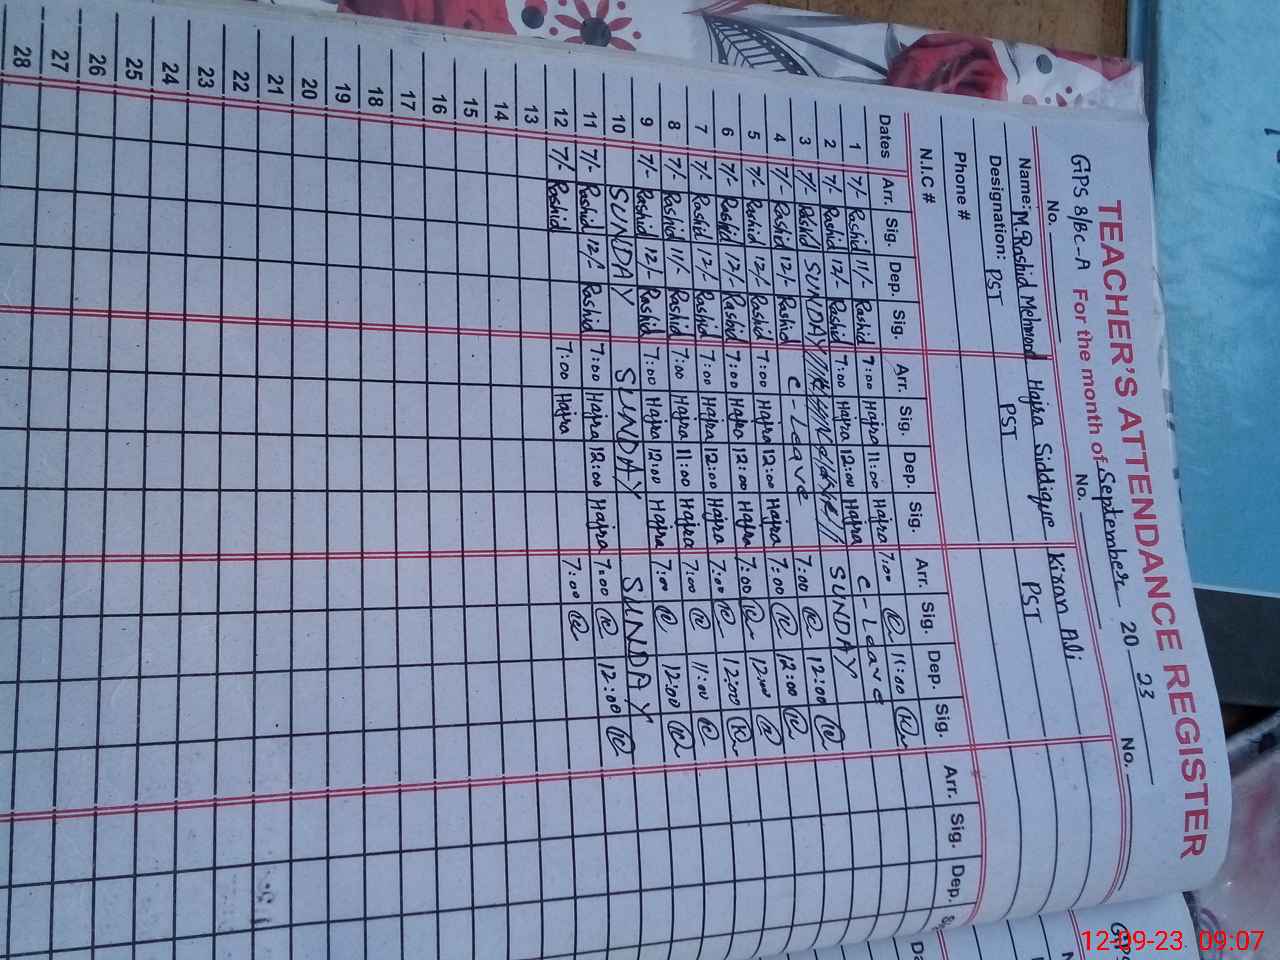 TEACHER'S ATTENDANCE REGISTER
GPS 8/BC-A For the month of September 2023
No. No. No.
Name: M.Rashid Mehmood Hajra Siddique Kiran Ali
Designation: PST PST PST
Phone #
N.I.C #
Dates Arr. Sig. Dep. Sig. Arr. Sig. Dep. Sig. Arr. Sig. Dep. Sig. Arr. Sig. Dep.
1 7/- Rashid 11/- Rashid 7:00 Hajra 11:00 Hajra 7:00 11:00
2 7/- Rashid 12/- Rashid 7:00 Hajra 12:00 Hajra C-Leave
3 7/- Rashid SUNDAY SUNDAY
4 7/- Rashid 12/- Rashid C-Leave 7:00 12:00
5 7/- Rashid 12/- Rashid 7:00 Hajra 12:00 Hajra 7:00 12:00
6 7/- Rashid 12/- Rashid 7:00 Hajra 12:00 Hajra 7:00 12:00
7 7/- Rashid 12/- Rashid 7:00 Hajra 12:00 Hajra 7:00 12:00
8 7/- Rashid 11/- Rashid 7:00 Hajra 11:00 Hajra 7:00 11:00
9 7/- Rashid 12/- Rashid 7:00 Hajra 12:00 Hajra 7:00 12:00
10 SUNDAY SUNDAY SUNDAY
11 7/- Rashid 12/- Rashid 7:00 Hajra 12:00 Hajra 7:00 12:00
12 7/- Rashid 7:00 Hajra 7:00
13
14
15
16
17
18
19
20
21
22
23
24
25
26
27
28
GPS
12-09-23 09:07